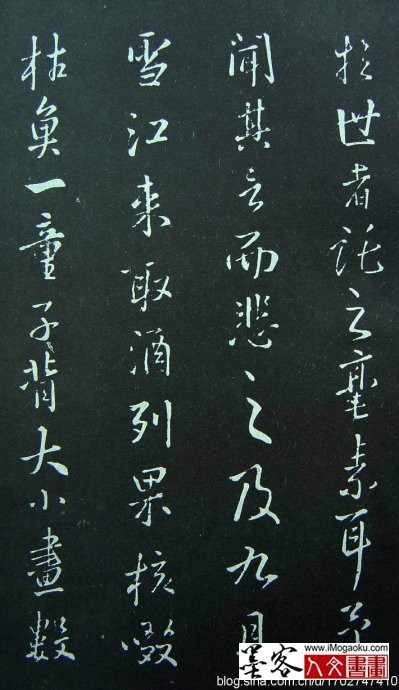 於世者託之毫素耳予
聞其言而悲之及九月
雪江來取酒列果核啜
枯魚一童子背大小畫數
墨客
www.iMogaoku.com
人文書畫
blog.sina.com.cn/u/1702747410